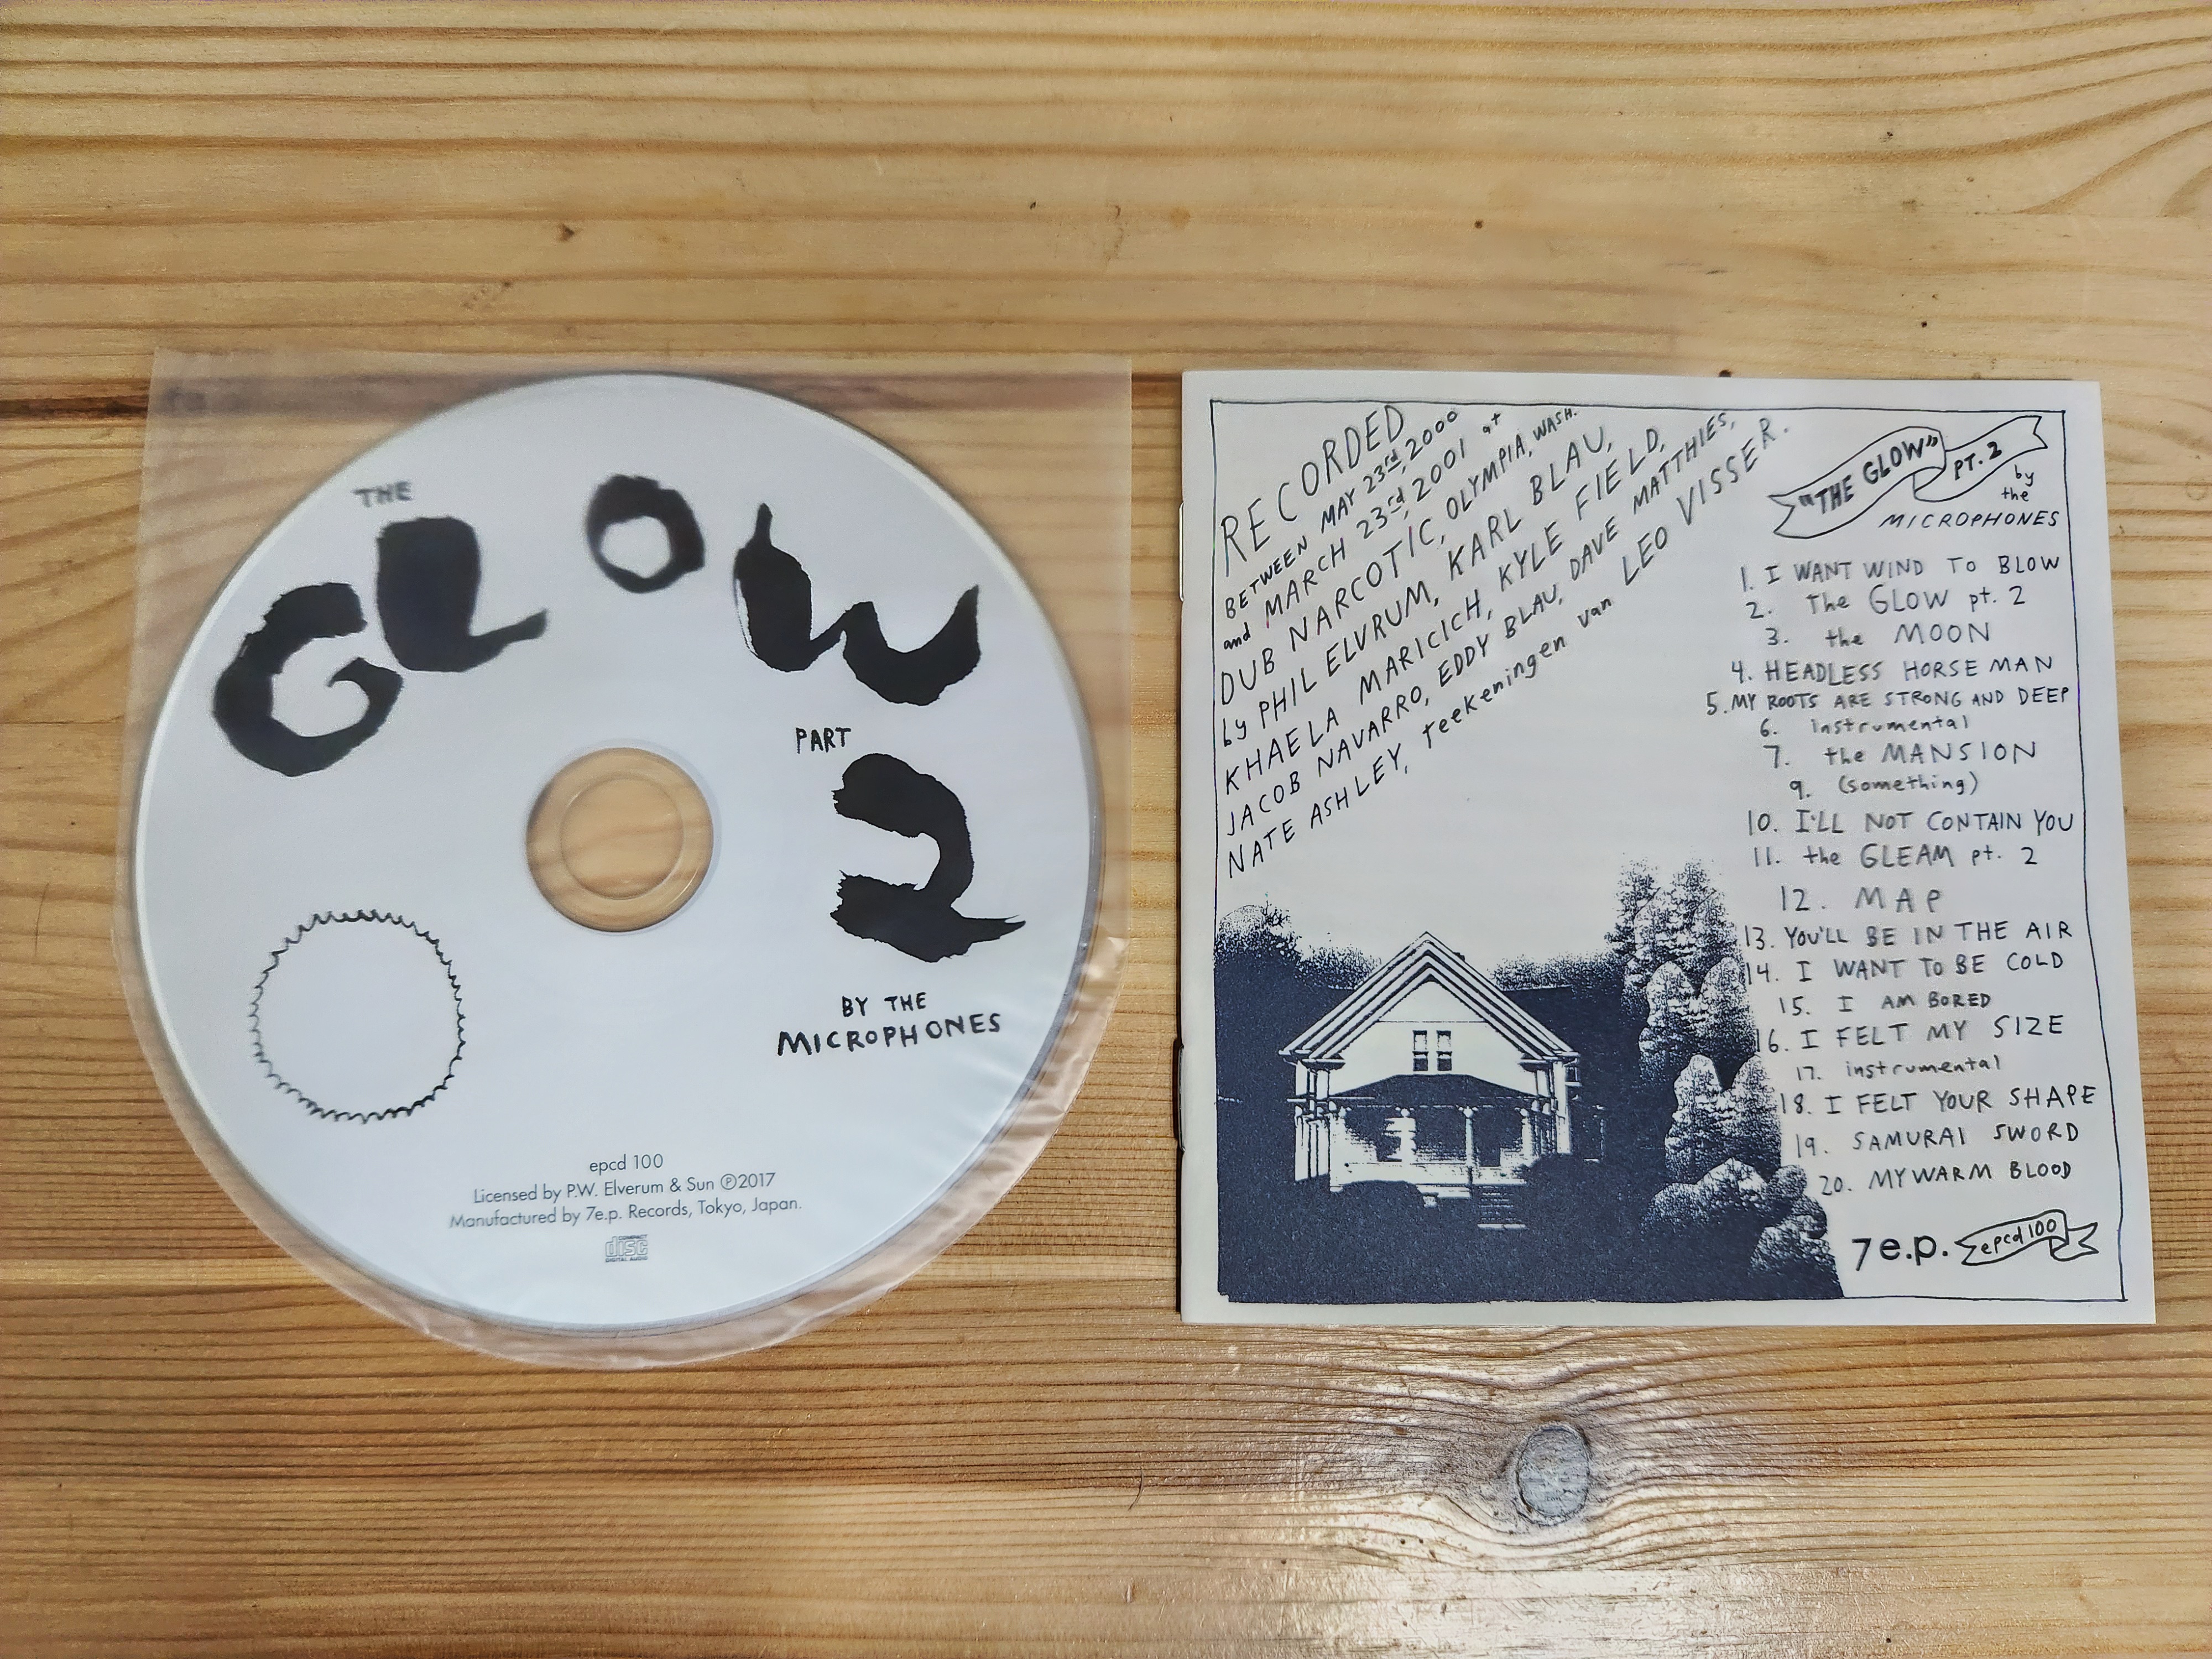 THE
GLOW
PART
2
BY THE
MICROPHONES
epcd 100
Licensed by P.W. Elverum & Sun ℗2017
Manufactured by 7e.p. Records, Tokyo, Japan.
COMPACT
disc
DIGITAL AUDIO
RECORDED
BETWEEN MAY 23rd, 2000
and MARCH 23rd, 2001 at
DUB NARCOTIC, OLYMPIA, WASH.
by PHIL ELVRUM, KARL BLAU,
KHAELA MARICICH, KYLE FIELD,
JACOB NAVARRO, EDDY BLAU, DAVE MATTHIES,
NATE ASHLEY, Teekeningen van LEO VISSER.
"THE GLOW"
PT. 2
by
the
MICROPHONES
1. I WANT WIND TO BLOW
2. The GLOW pt. 2
3. the MOON
4. HEADLESS HORSEMAN
5. MY ROOTS ARE STRONG AND DEEP
6. instrumental
7. the MANSION
9. (something)
10. I'LL NOT CONTAIN YOU
11. the GLEAM pt. 2
12. MAP
13. YOU'LL BE IN THE AIR
14. I WANT TO BE COLD
15. I AM BORED
16. I FELT MY SIZE
17. instrumental
18. I FELT YOUR SHAPE
19. SAMURAI SWORD
20. MY WARM BLOOD
7e.p. epcd 100